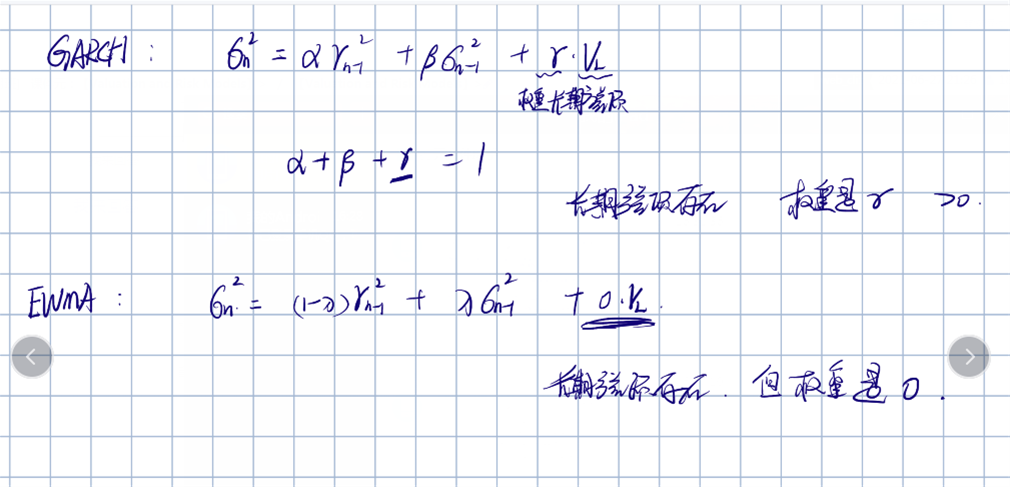 GARCH : σₙ² = α r²ₙ₋₁ + β σ²ₙ₋₁ + γ · V_L
权重 长期方差
α + β + γ = 1
长期方差存在 权重是 γ >0.
EWMA : σₙ² = (1-λ) r²ₙ₋₁ + λ σ²ₙ₋₁ + 0 · V_L .
长期方差存在 . 但权重是 0 .